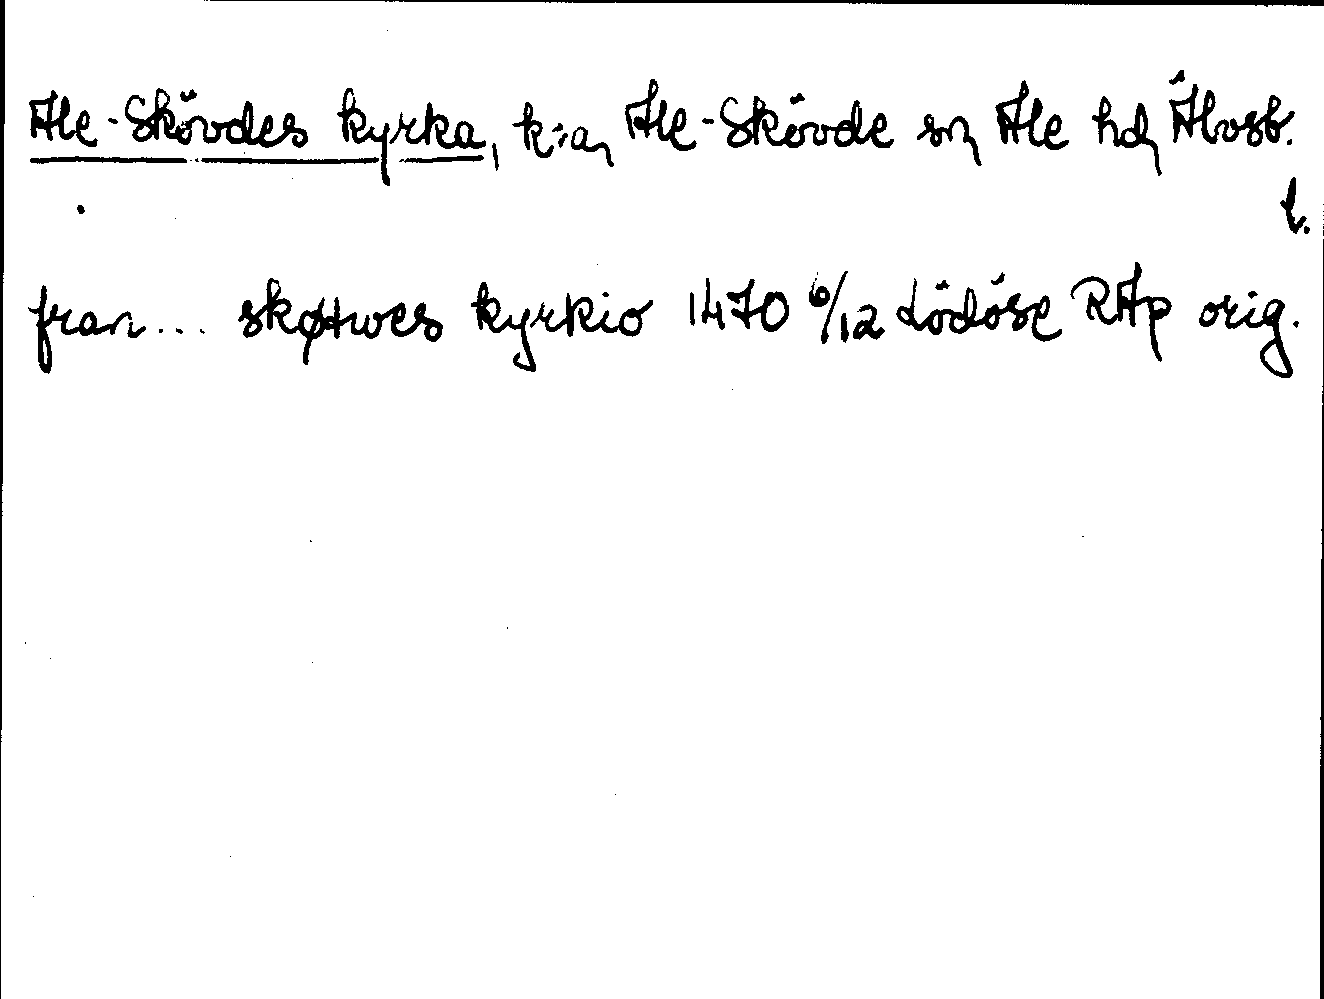 Ale-Skövdes kyrka, k:a, Ale-Skövde sn, Ale hd, Älvsb.
l.
fran... skøtwes kyrkio 1470 6/12 Lödöse RAp orig.